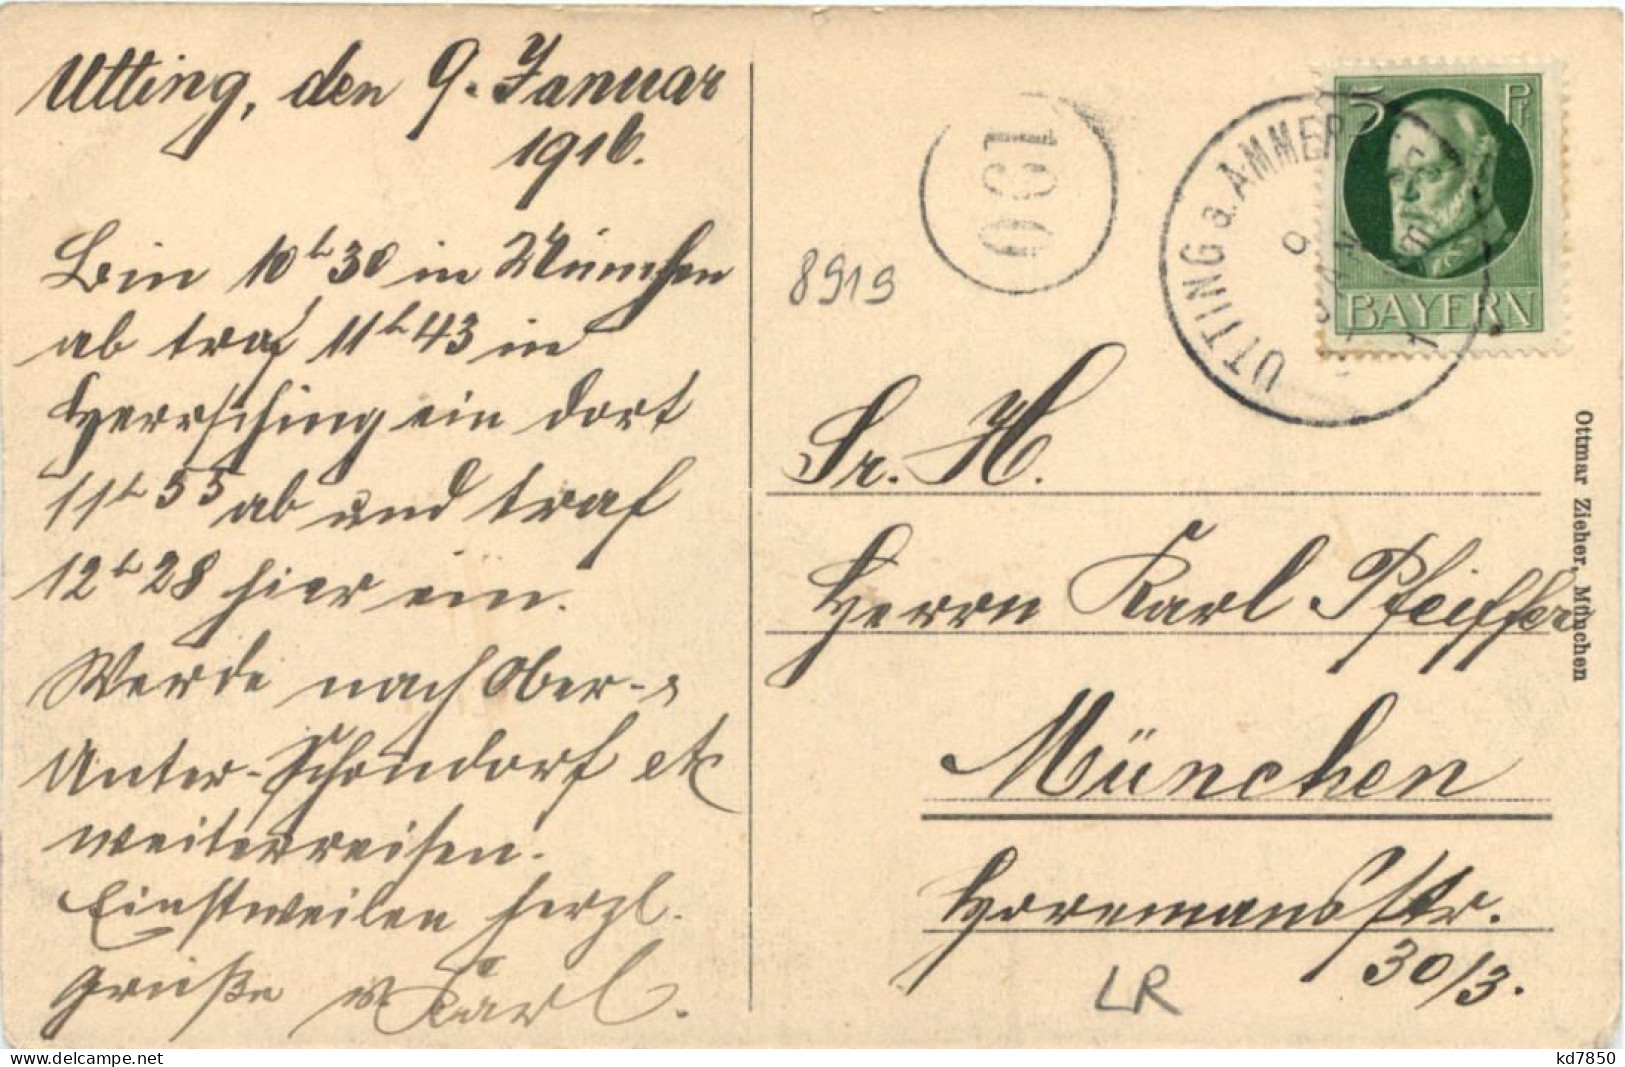 Utting, den 9. Januar
1916.
Bin 10h 30 in München
ab traf 11h 43 in
Herrsching ein dort
11h 55 ab und traf
12h 28 hier ein.
Werde nach Ober- &
Unter-Schondorf etc
weiterreisen.
Einstweilen herzl.
Grüße v. Karl.
130
8919
UTTING a. AMMER
9 JAN
5 Pf
BAYERN
Sr. H.
Herrn Karl Pfeiffer
München
Horemansstr.
30/3.
LR
Ottmar Zieher, München
kd7850